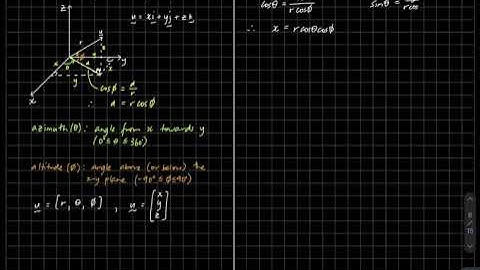 z
u = xi + yj + zk
r
y
x
cosϕ = d/r
∴ d = r cosϕ
azimuth (θ) : angle from x towards y
(0° ≤ θ ≤ 360°)
altitude (ϕ) : angle above (or below) the
x-y plane (-90° ≤ ϕ ≤ 90°)
u = [r, θ, ϕ] , u = [x y z]
cosθ = x/rcosϕ
sinθ = y/rcos
∴ x = r cosθ cosϕ
8
15